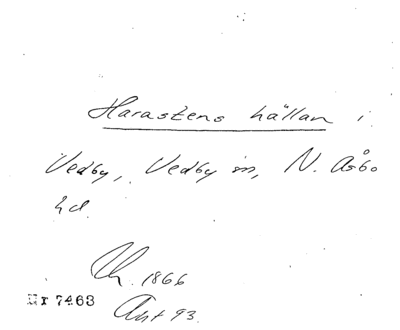 Harastens hällan i
Vedby, Vedby sn, N. Åsbo
hd.
1866
Nr 7463
93.